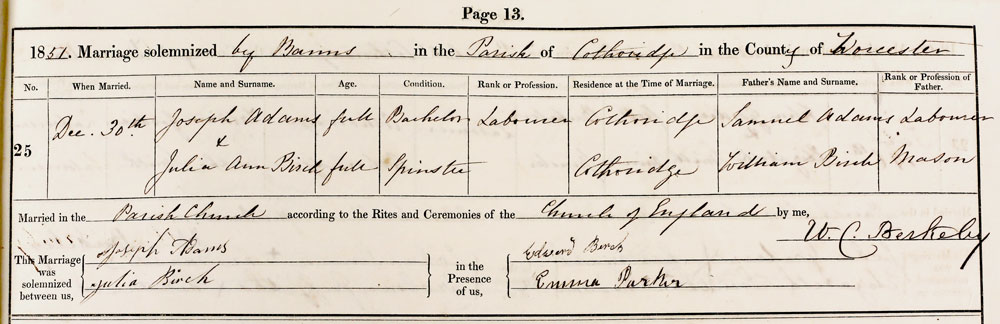 Page 13.
1851. Marriage solemnized by Banns in the Parish of Cothoridge in the County of Worcester
No. When Married. Name and Surname. Age. Condition. Rank or Profession. Residence at the Time of Marriage. Father's Name and Surname. Rank or Profession of Father.
25 Dec. 30th Joseph Adams full Bachelor Labourer Cothoridge Samuel Adams Labourer
&
Julia Ann Birch full Spinster Cothoridge William Birch Mason
Married in the Parish Church according to the Rites and Ceremonies of the Church of England by me,
W. C. Berkeley
This Marriage was solemnized between us, Joseph Adams in the Presence of us, Edward Birch
Julia Birch Emma Parker